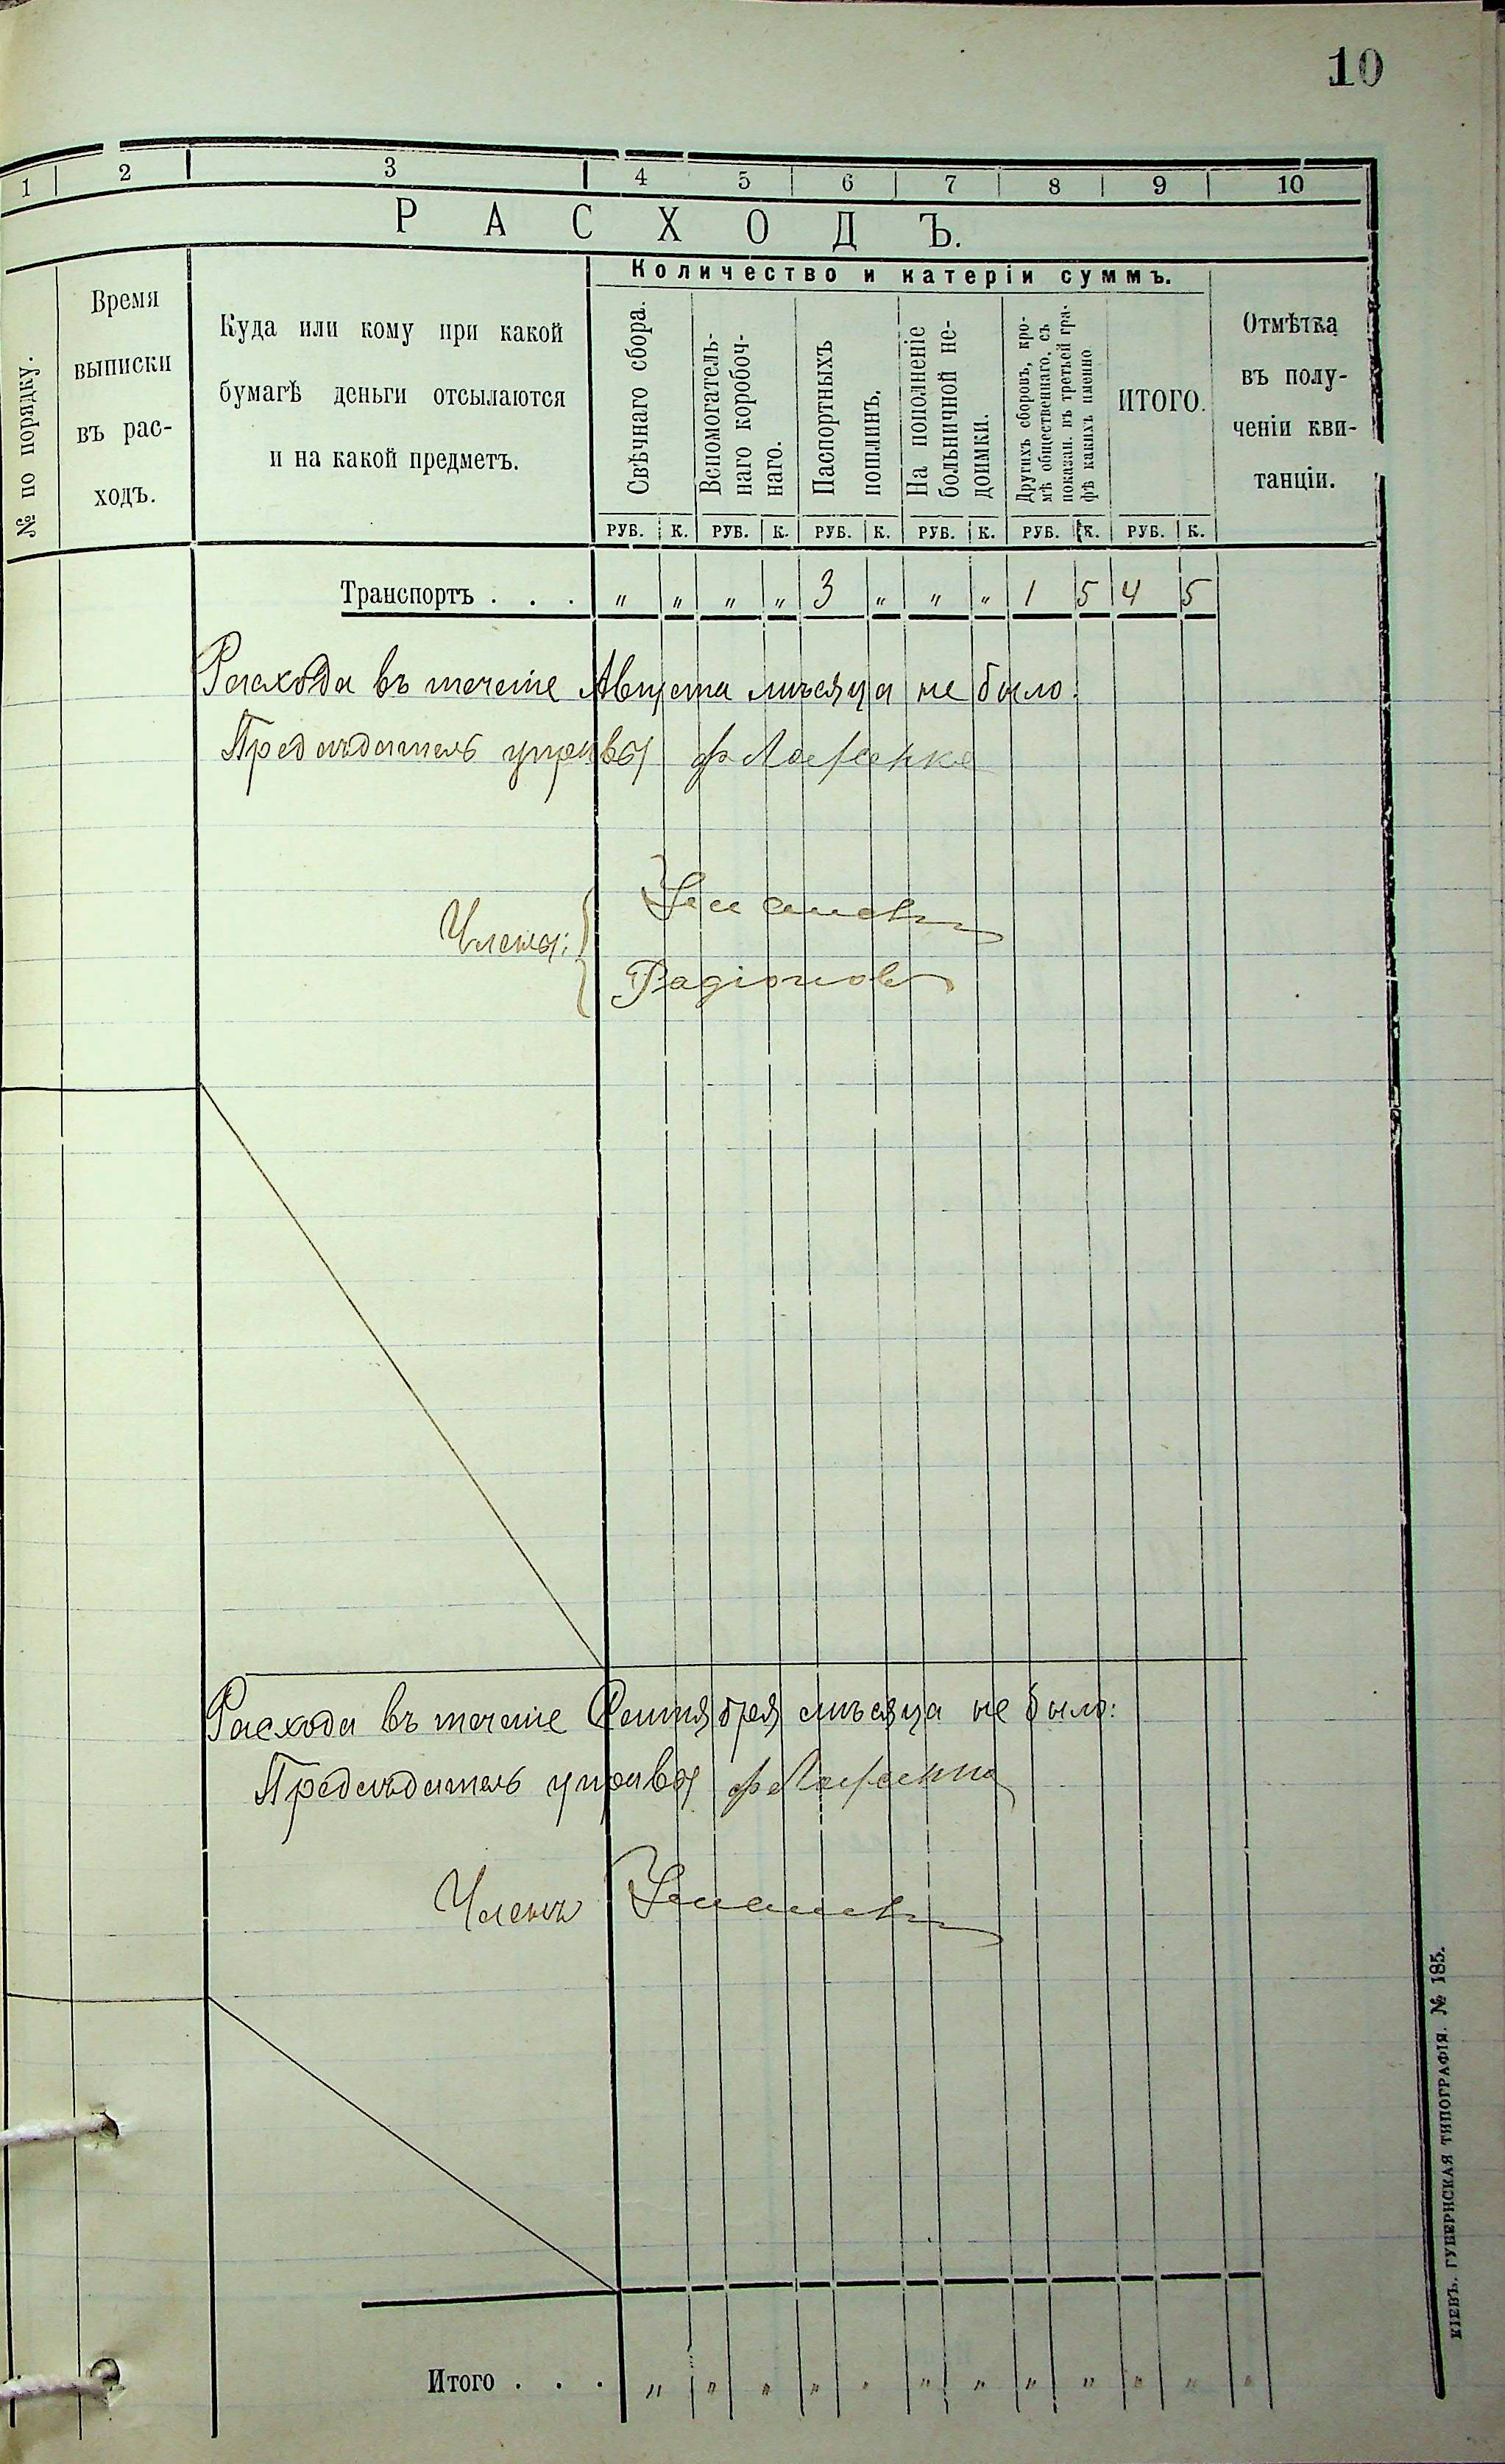 10
1 2 3 4 5 6 7 8 9 10
РАСХОДЪ.
№ по порядку.
Время
выписки
въ рас-
ходъ.
Куда или кому при какой
бумагѣ деньги отсылаются
и на какой предметъ.
Количество и катеріи суммъ.
Свѣчнаго сбора.
Вспомогатель-
наго коробоч-
наго.
Паспортныхъ
пошлинъ.
На пополненіе
больничной не-
доимки.
Другихъ сборовъ, кро-
мѣ общественнаго, съ
показан. въ третьей гра-
фѣ какихъ именно
ИТОГО.
Отмѣтка
въ полу-
ченіи кви-
танціи.
РУБ. К. РУБ. К. РУБ. К. РУБ. К. РУБ. К. РУБ. К.
Транспортъ . . . „ „ „ „ 3 „ „ „ 1 5 4 5
Расхода въ теченіе Августа мѣсяца не было:
Предсѣдатель управы
Члены:
Радіонов
Расхода въ теченіе Сентября мѣсяца не было:
Предсѣдатель управы
Членъ
Итого . . . „ „ „ „ „ „ „ „ „ „ „ „
КІЕВЪ. ГУБЕРНСКАЯ ТИПОГРАФІЯ. № 185.